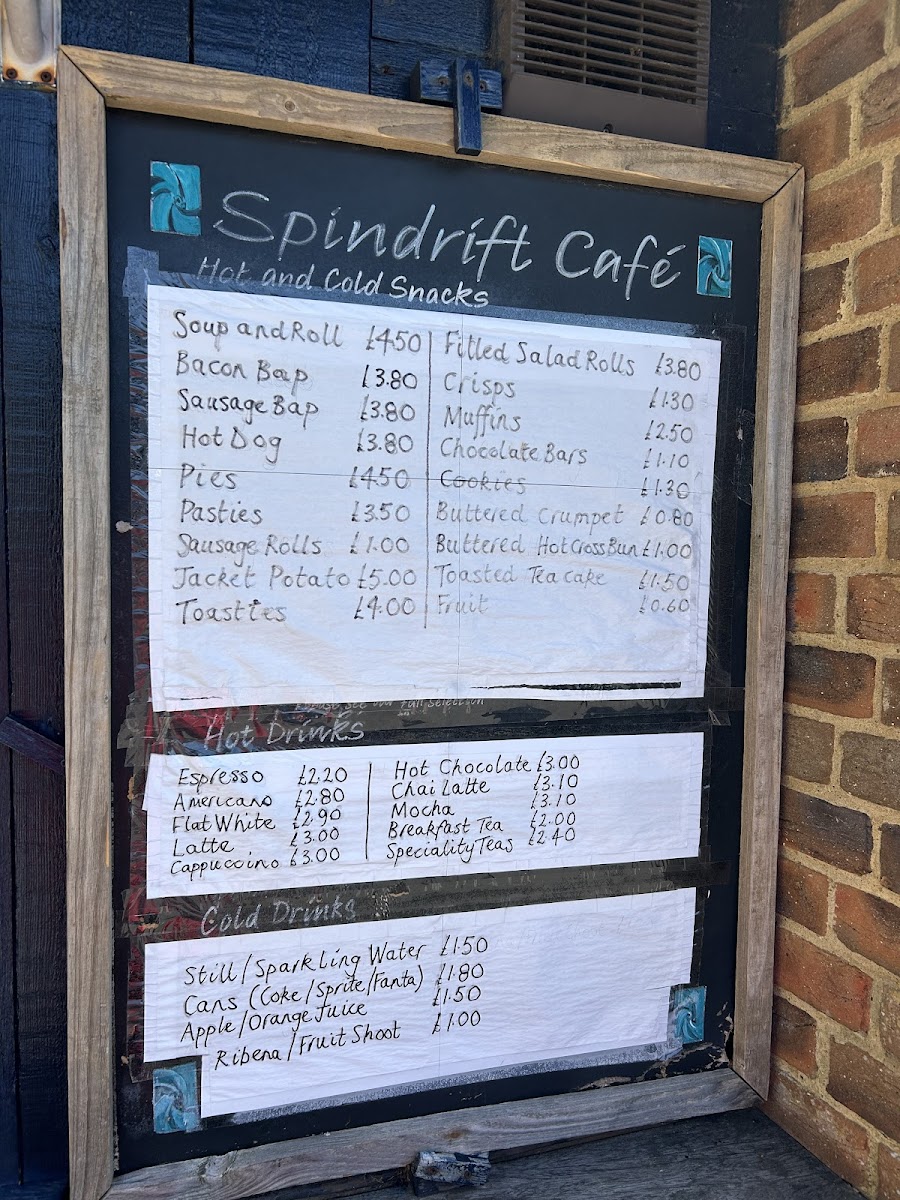 Spindrift Café
Hot and Cold Snacks
Soup and Roll £4.50
Bacon Bap £3.80
Sausage Bap £3.80
Hot Dog £3.80
Pies £4.50
Pasties £3.50
Sausage Rolls £1.00
Jacket Potato £5.00
Toasties £4.00
Filled Salad Rolls £3.80
Crisps £1.30
Muffins £2.50
Chocolate Bars £1.10
Cookies £1.30
Buttered Crumpet £0.80
Buttered Hot Cross Bun £1.00
Toasted Tea cake £1.50
Fruit £0.60
Please see our full selection
Hot Drinks
Espresso £2.20
Americano £2.80
Flat White £2.90
Latte £3.00
Cappuccino £3.00
Hot Chocolate £3.00
Chai Latte £3.10
Mocha £3.10
Breakfast Tea £2.00
Speciality Teas £2.40
Cold Drinks
Still/Sparkling Water £1.50
Cans (Coke/Sprite/Fanta) £1.80
Apple/Orange Juice £1.50
Ribena/Fruit Shoot £1.00